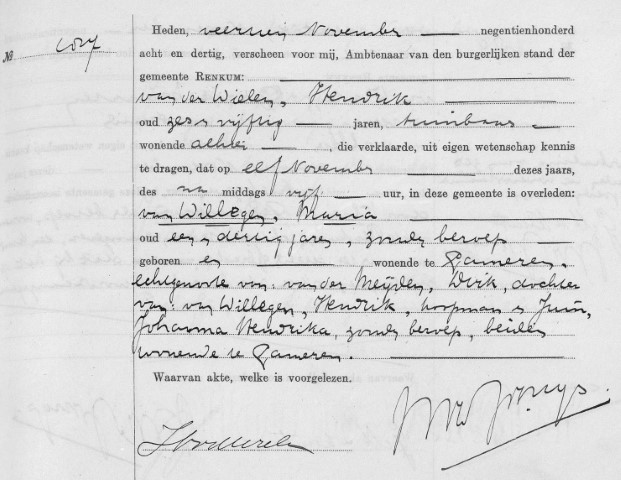 Heden, veertien November negentienhonderd
acht en dertig, verscheen voor mij, Ambtenaar van den burgerlijken stand der
№
gemeente RENKUM:
van der Wielen, Hendrik
oud zes en vijftig jaren, tuinbaas
wonende alhier, die verklaarde, uit eigen wetenschap kennis
te dragen, dat op elf November dezes jaars,
des na middags vijf uur, in deze gemeente is overleden:
van Willegen, Maria
oud een en dertig jaren, zonder beroep
geboren en wonende te Gameren,
echtgenoote van: van der Meijden, Dirk, dochter
van: van Willegen, Hendrik, koopman en
Johanna Hendrika, zonder beroep, beiden
wonende te Gameren.
Waarvan akte, welke is voorgelezen.